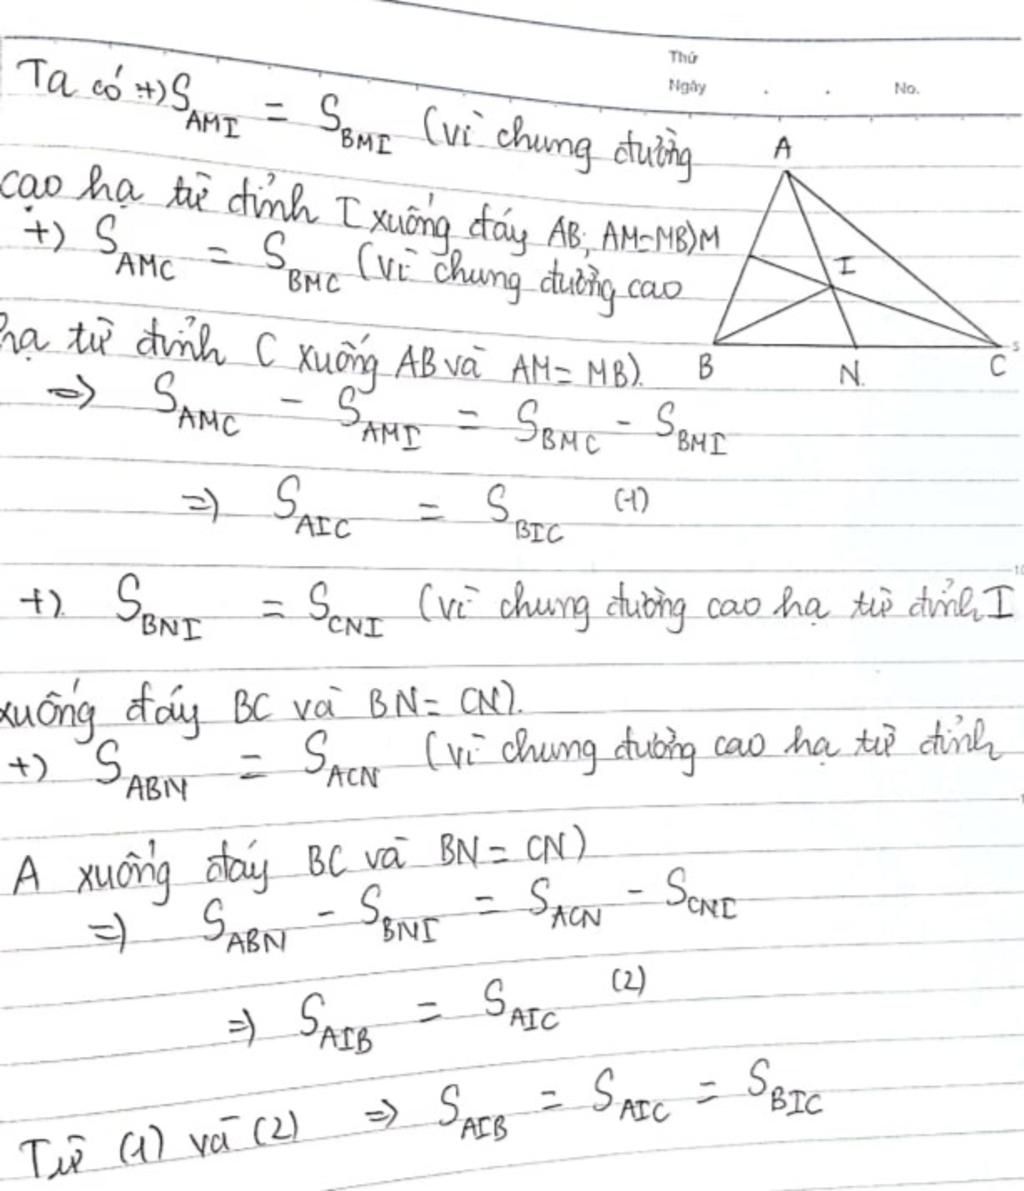 Thứ
Ngày . . No.
Ta có +) S_AMI = S_BMI (vì chung đường
cao hạ từ đỉnh I xuống đáy AB; AM=MB)
+) S_AMC = S_BMC (vì chung đường cao
hạ từ đỉnh C xuống AB và AM = MB).
=> S_AMC - S_AMI = S_BMC - S_BMI
=> S_AIC = S_BIC (1)
+) S_BNI = S_CNI (vì chung đường cao hạ từ đỉnh I
xuống đáy BC và BN = CN).
+) S_ABN = S_ACN (vì chung đường cao hạ từ đỉnh
A xuống đáy BC và BN = CN)
=> S_ABN - S_BNI = S_ACN - S_CNI
=> S_AIB = S_AIC (2)
Từ (1) và (2) => S_AIB = S_AIC = S_BIC
A
M
I
B
N
C
5
10